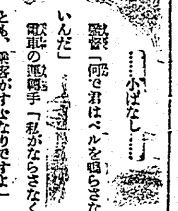 ……小ばなし……
監督「何で君はベルを鳴らさな
いんだ」
電車の運轉手「私がならさなく
とも、乘客がすぶなりですよ」